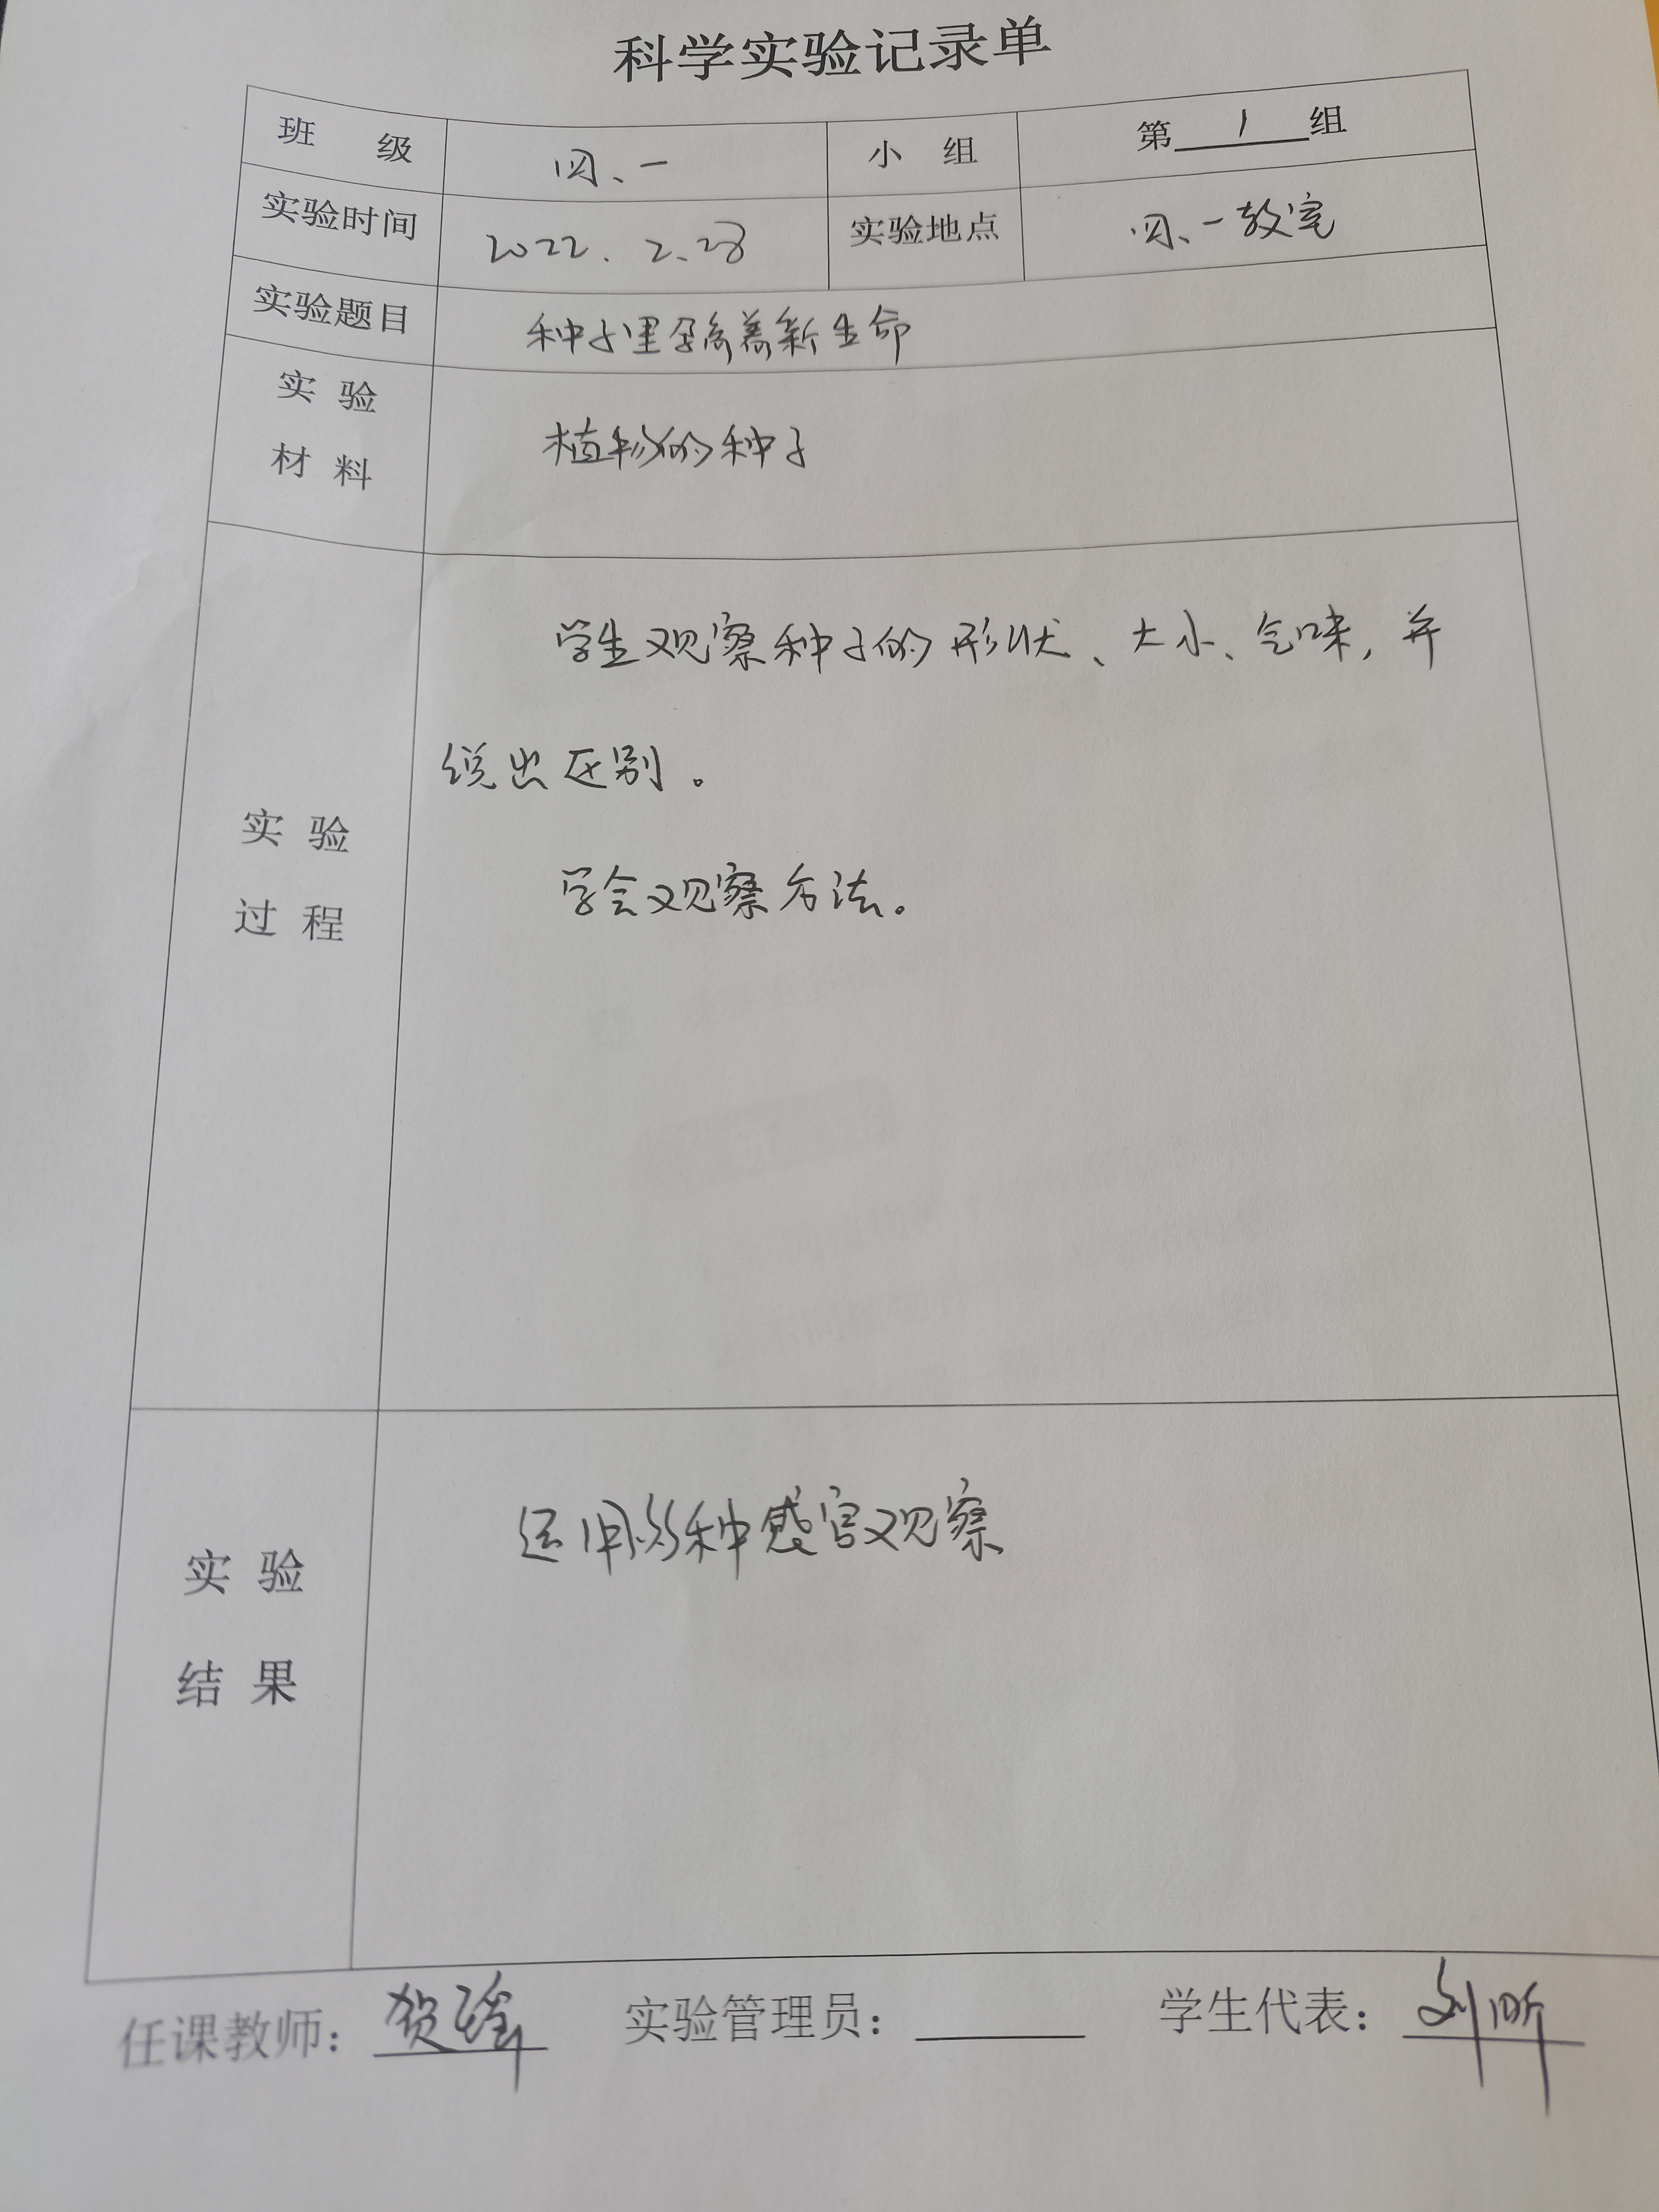 科学实验记录单
班 级 四、一 小 组 第 1 组
实验时间 2022. 2.28 实验地点 四、一教室
实验题目 种子里孕育着新生命
实 验
材 料
植物的种子
学生观察种子的形状、大小、气味,并
说出区别。
学会观察方法。
实 验
过 程
运用多种感官观察
实 验
结 果
任课教师: 贺瑶 实验管理员: 学生代表: 刘昕